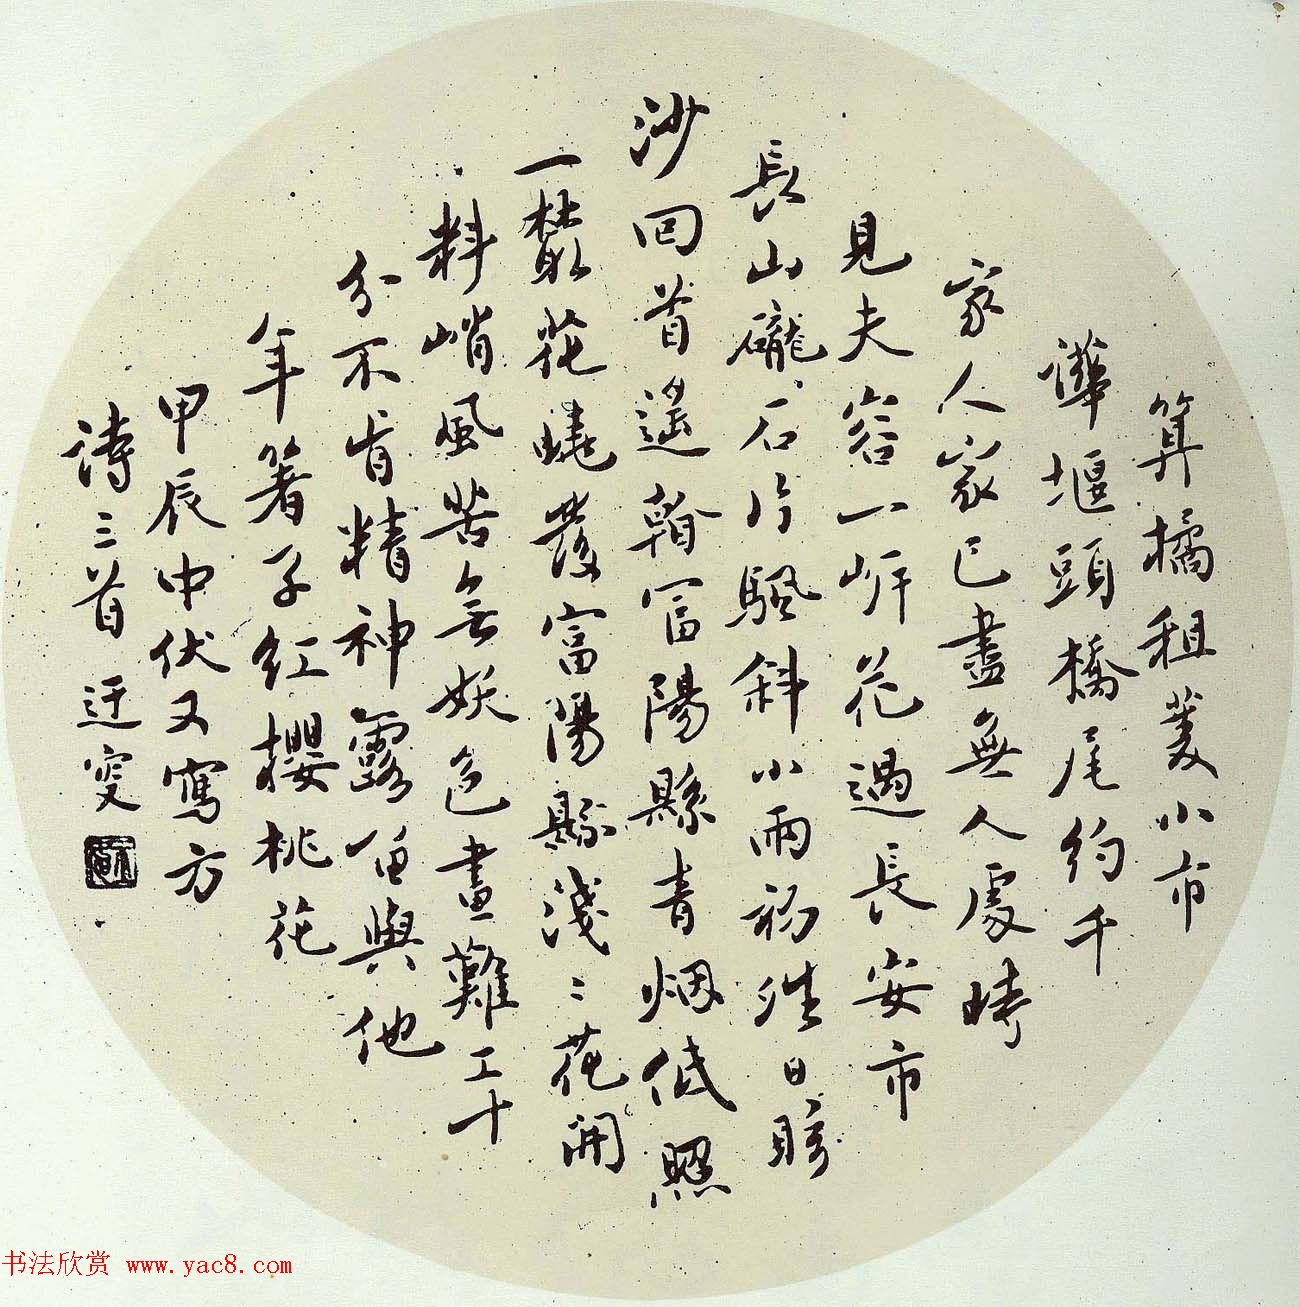 算橘租菱小市
譁堰頭橋尾約千
家人家已盡無人處時
見夫容一岍花過長安市
長山礲〻石片颿斜小雨初收日
沙回首遥斡富陽縣青烟低照
一叢花曉發富陽縣淺〻花開
料峭風苦無妖色畫難工十
分不肯精神露留與他
年著子紅櫻桃花
甲辰中伏又寫方
詩三首迂叟
书法欣赏 www.yac8.com